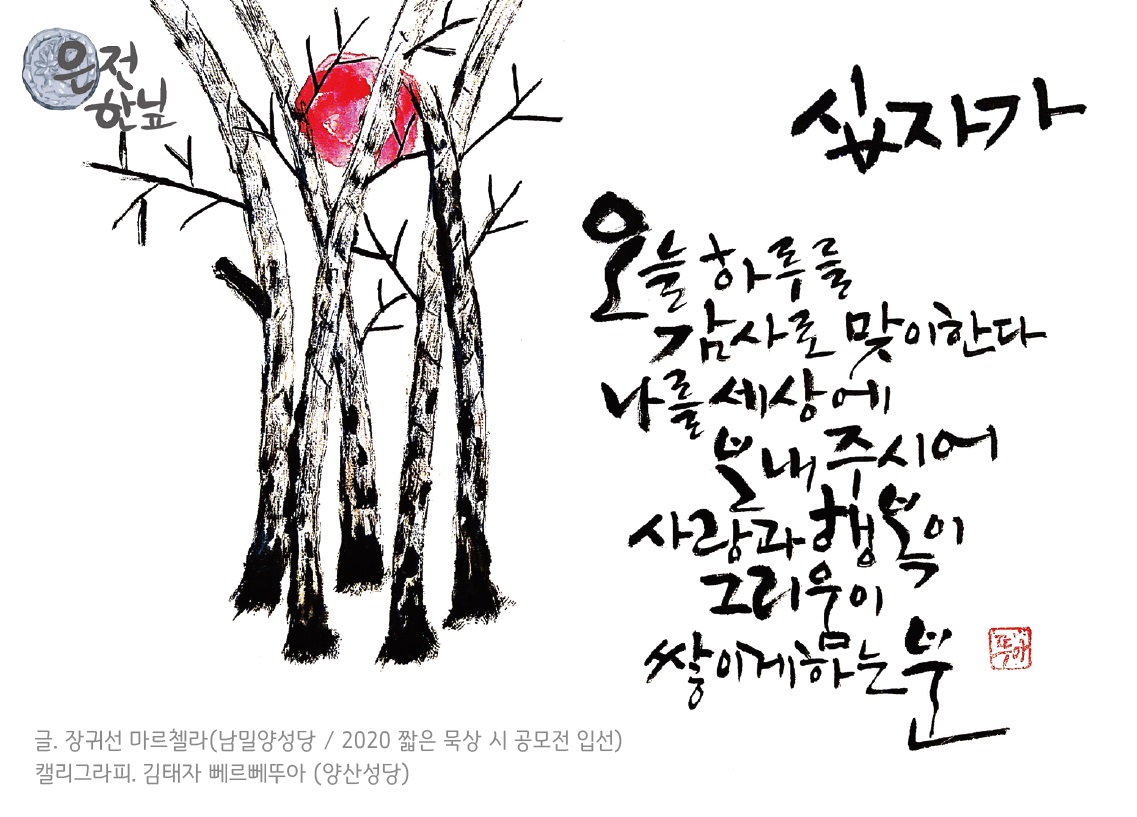 은전
한닢
십자가
오늘 하루를
감사로 맞이한다
나를 세상에
보내 주시어
사랑과 행복이
그리움이
쌓이게 하는 분
뚜아
글. 장귀선 마르첼라(남밀양성당 / 2020 짧은 묵상 시 공모전 입선)
캘리그라피. 김태자 뻬르뻬뚜아 (양산성당)